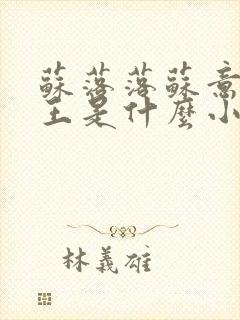 蘇落落蘇意
王是什麼小
林義雄